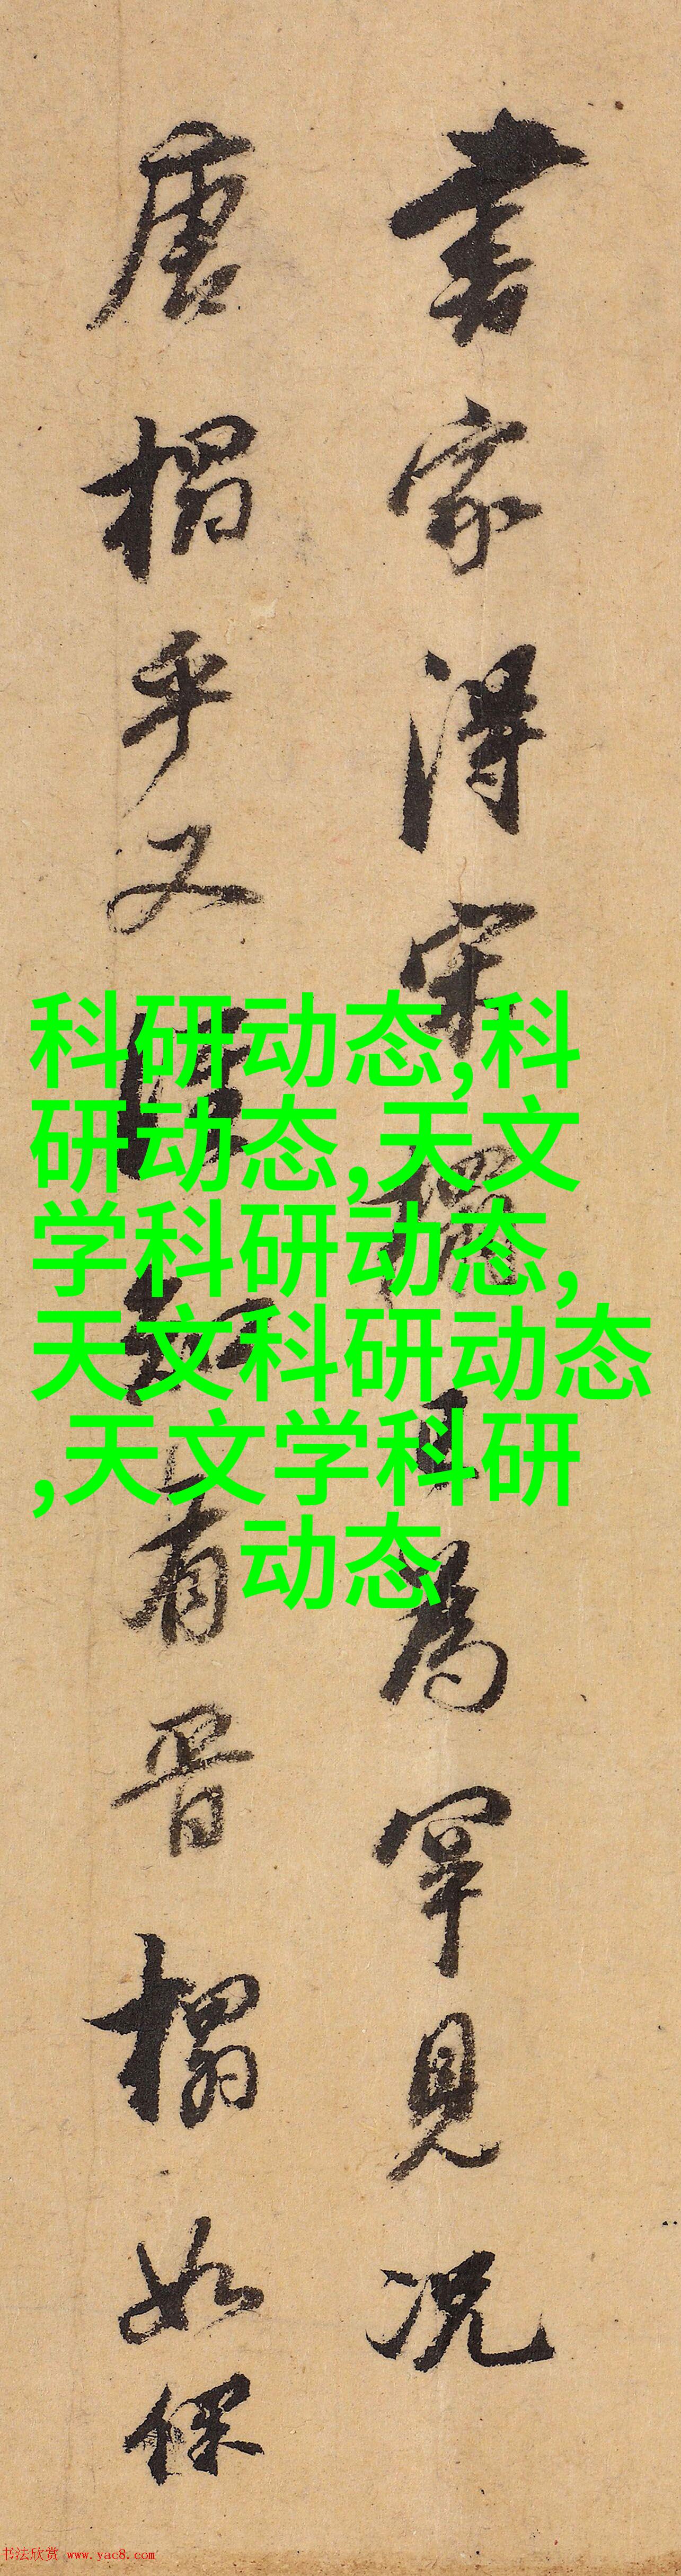 書家得宋榻為罕見況
唐榻乎又有晉榻如保
科研动态,科
研动态,天文
学科研动态,
天文科研动态
,天文学科研
动态
书法欣赏 www.yac8.com